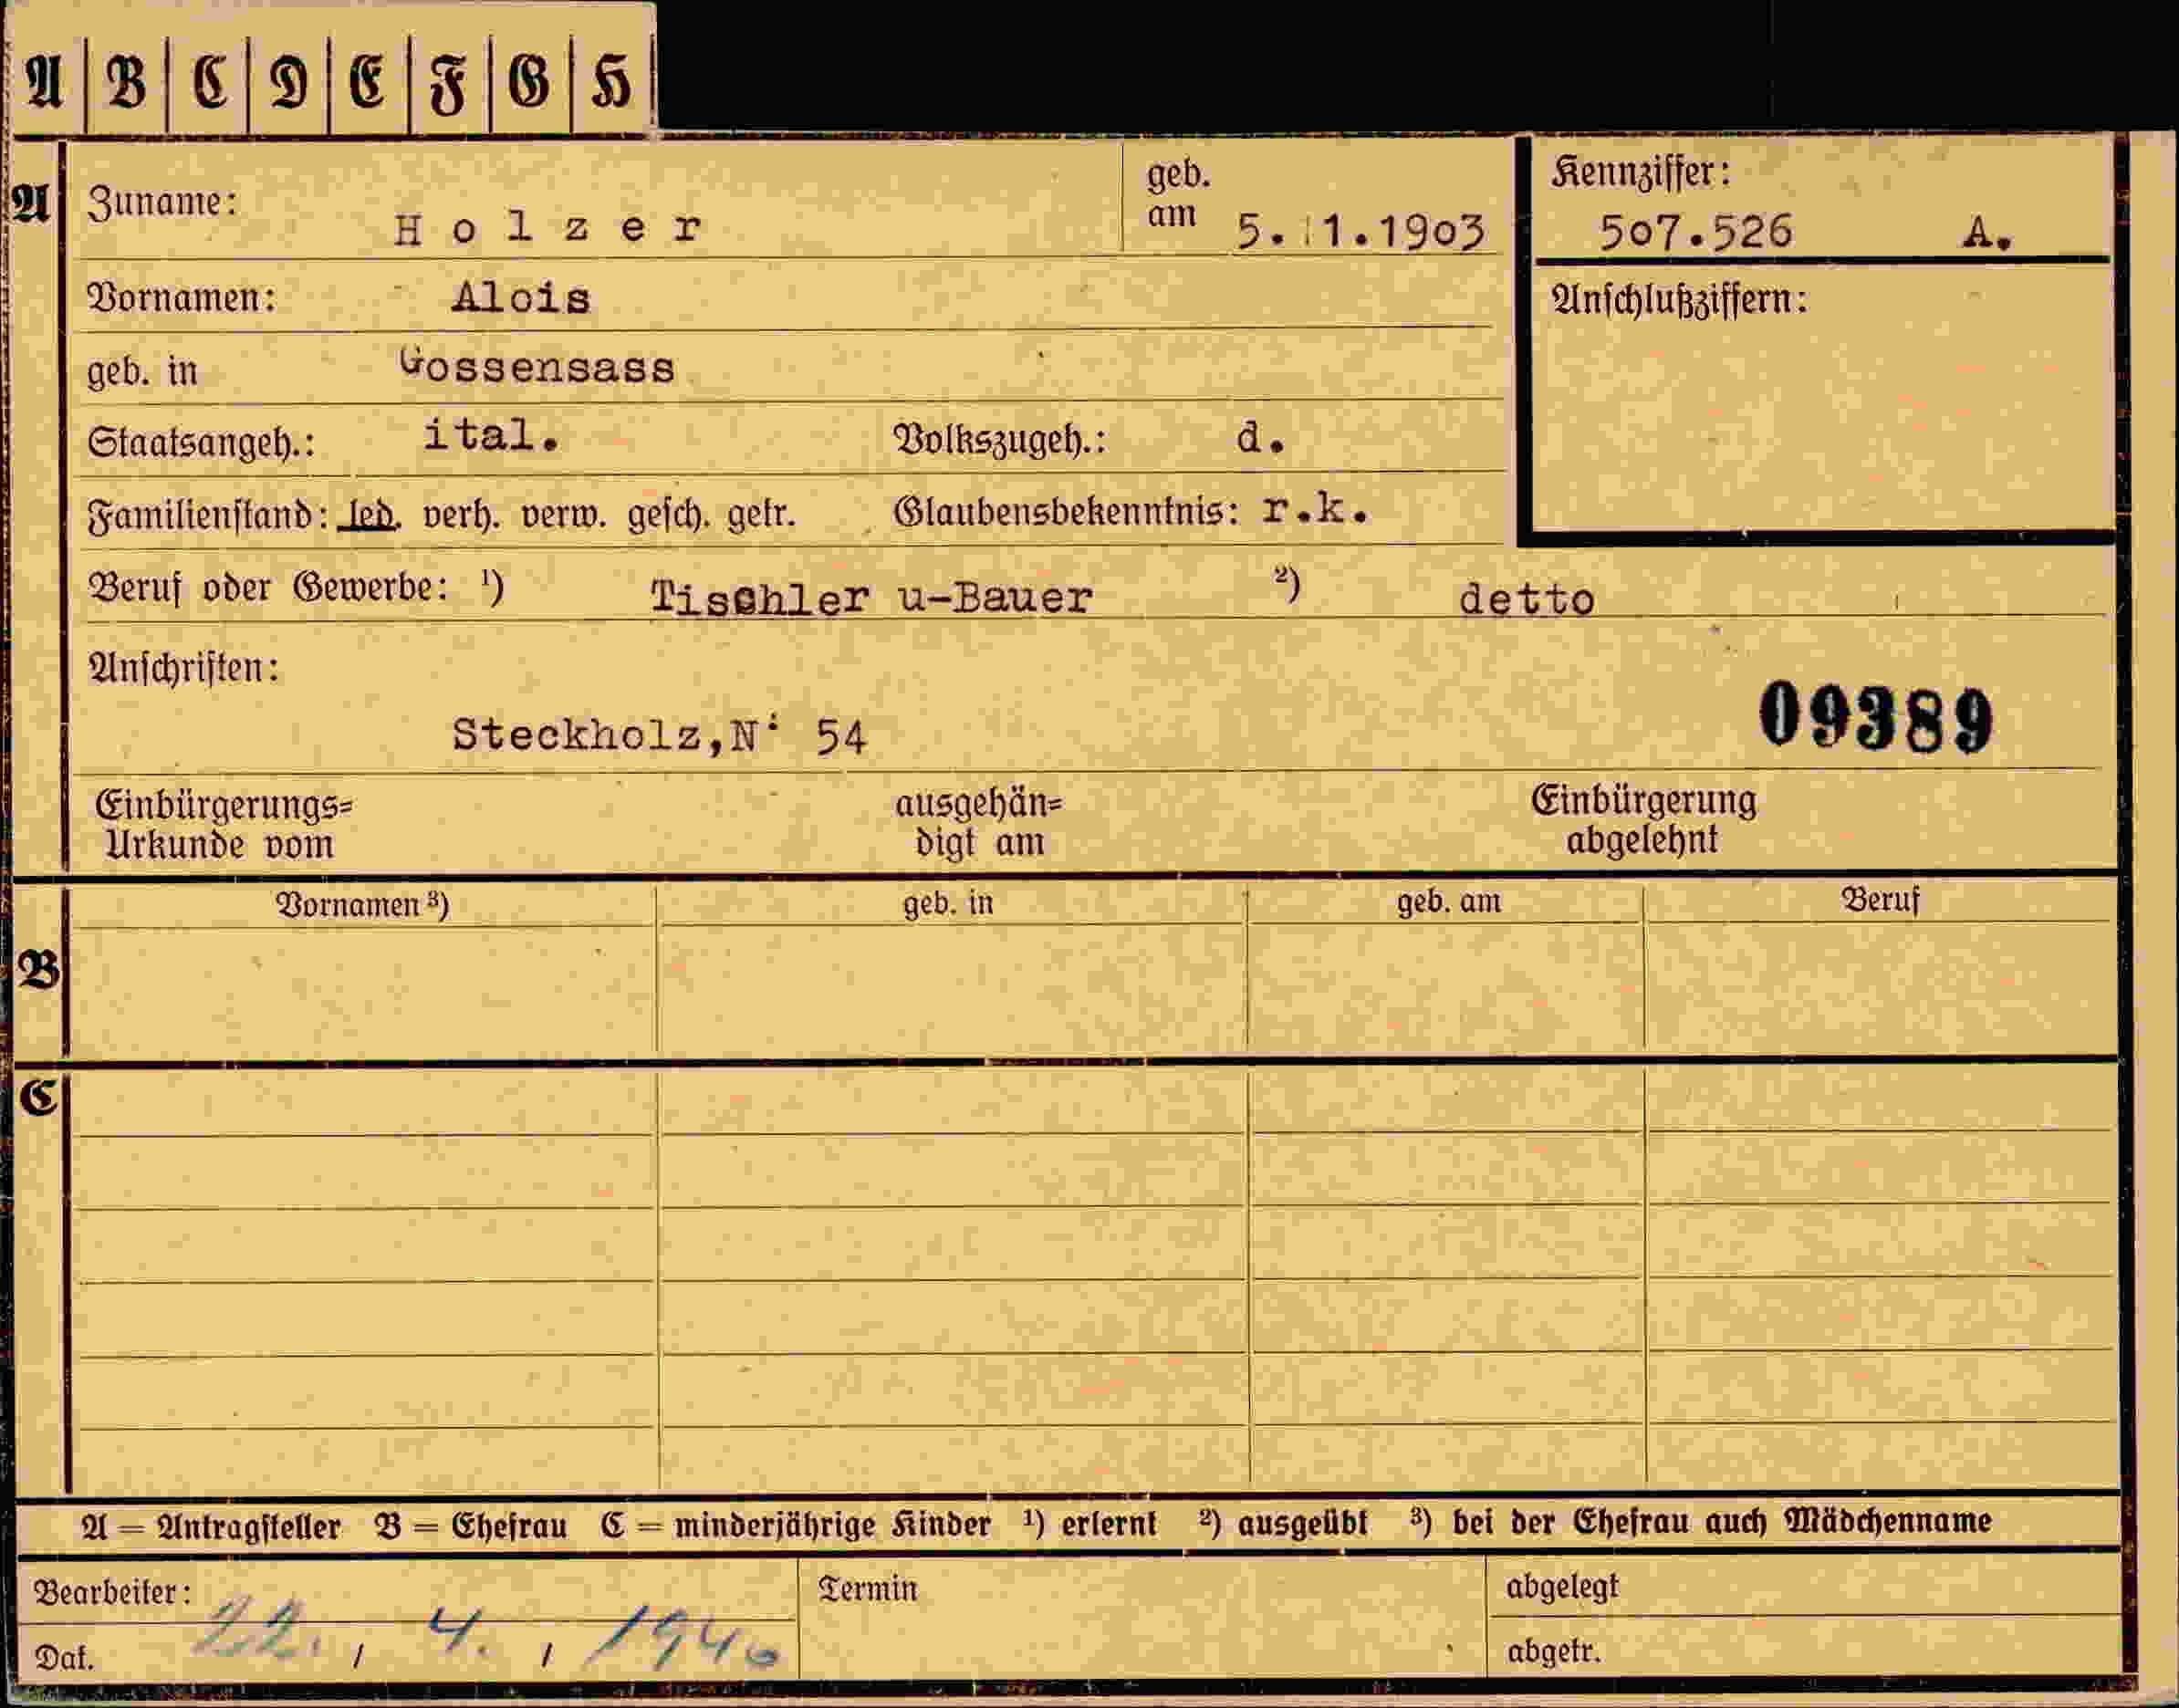 A B C D E F G H
A Zuname: Holzer geb. am 5.11.1903 Kennziffer: 507.526 A.
Vornamen: Alois Anschlußziffern:
geb. in Gossensass
Staatsangeh.: ital. Volkszugeh.: d.
Familienstand: led. verh. verw. gesch. getr. Glaubensbekenntnis: r.k.
Beruf oder Gewerbe: ¹) Tischler u-Bauer ²) detto
Anschriften:
Steckholz, N: 54 09389
Einbürgerungs= ausgehän= Einbürgerung
Urkunde vom digt am abgelehnt
Vornamen ³) geb. in geb. am Beruf
B
C
A = Antragsteller B = Ehefrau C = minderjährige Kinder ¹) erlernt ²) ausgeübt ³) bei der Ehefrau auch Mädchenname
Bearbeiter: Termin abgelegt
Dat. 22. / 4. / 1940 abgetr.